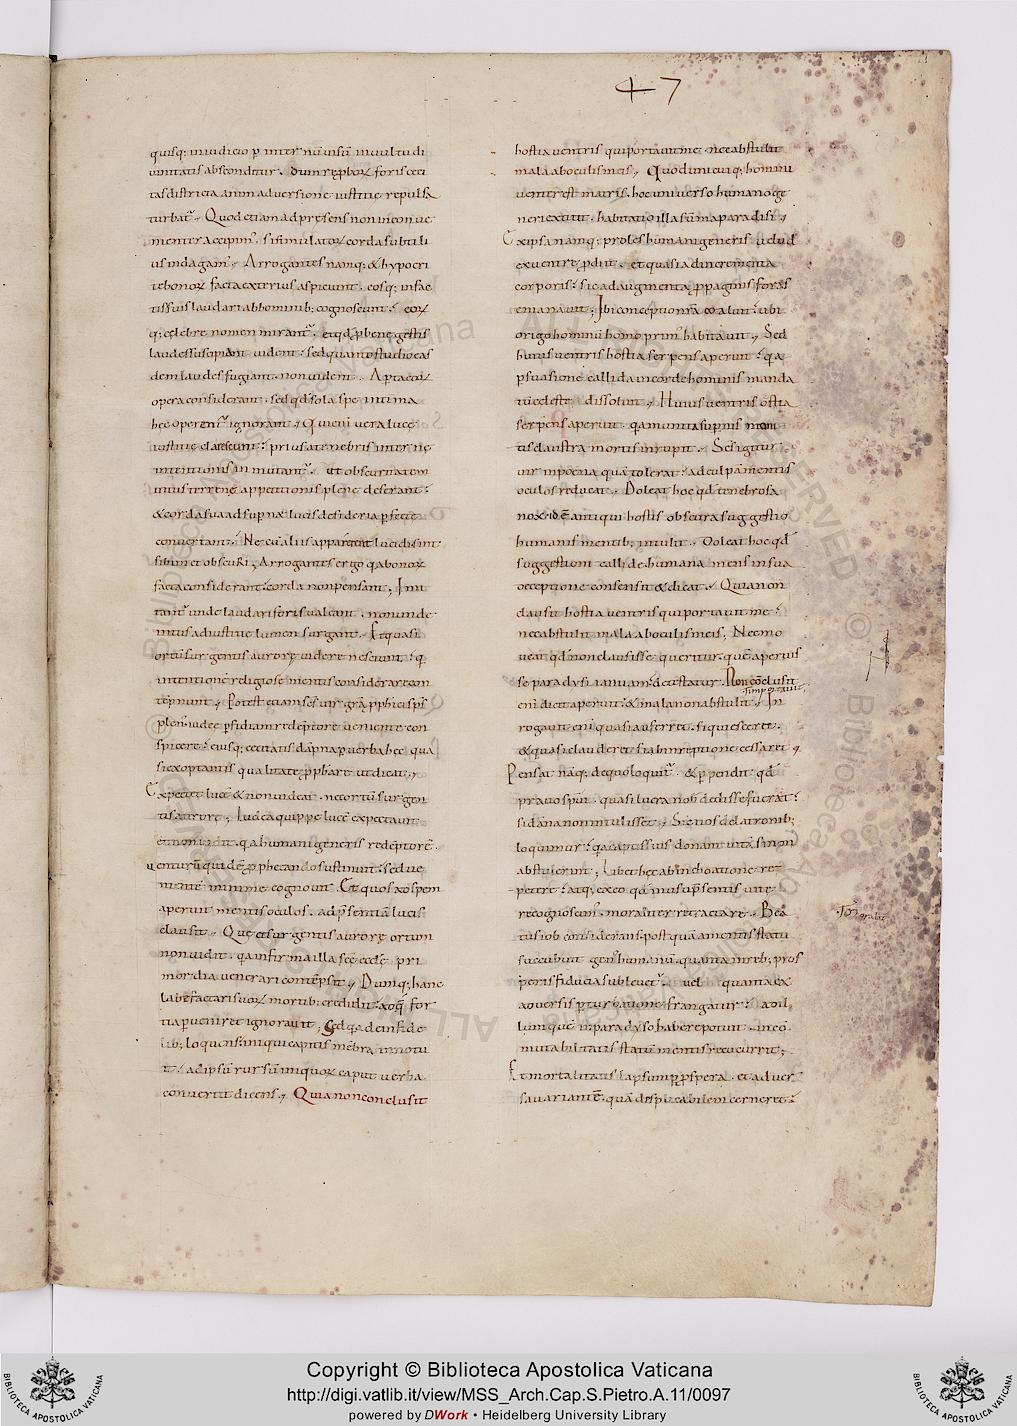 47
quisq; in iudicio p inter nũ uisũ in uultu di
uinitatis absconditur. dum reproboꝝ foris ceci
tas districta animaduersione iustitie repulsa
turbat~. Quod etiam ad presens non inconue
nienter accipim~. si simulatoꝝ corda subtili
us indagam~. Arrogantes namq; & hypocri
te bonoꝝ facta exterius aspiciunt. eosq; in sae
tis suis laudari ab hominib; cognoscunt. eoꝝ
q; celebre nomen mirant~. et qđ p bene gestis
laudes suscipiant uident. sed quanto studio eas
dem laudes fugiant. non uident. Aperta eoꝝ
opera considerant. sed qđ sola spe intima
hec operent~ ignorant. Qui enĩ uera luce
iustitie clarescunt. prius a tenebris interne
intentionis inmutant~. ut obscuritatem
intus terrene appetitionis plene deserant.
& corda sua ad superne lucis desideria pfecte
conuertant. Ne cũ aliis appareant lucidi sint
sibimet obscuri; Arrogantes ergo qa bonoꝝ
facta considerant. corda non pensant; Imi
tant~ unde laudari foris ualeant. non unde
intus ad iustitie lumen surgant. Et quasi
ortũ surgentis aurore uidere nesciunt. q
intentionẽ religiose mentis considerare con
tẽpnunt. Potest etiam sc̃s uir gr̃a prophici sps̃
plen~ iudee pfidiam redẽptore ueniente con
spicere. eiusq; cecitatis dãpna p uerba hec qua
si exoptantis qualitate p prbare ut dicat.
Expectet lucẽ & non uideat. nec ortũ surgen
tis aurore; Iudea quippe lucẽ expectauit
et non uidit. qa humani generis redẽptorẽ.
uenturũ quidẽ prophetando sustinuit. sed ue
nientẽ minime cognouit. Et quos ad spem
aperuit mentis oculos. ad p̃sentiã lucis
clausit. Que et surgentis aurore ortum
non uidit. qa infirma illa sc̃e eccl̃e pri
mordia uenerari contẽpsit. Dumq; hanc
labefactari suoꝝ morib; credidit. ad qẽ for
tia pueniret ignorauit; Sed qa de infide
lib; loquens. iniqui capitis mẽbra innotu
it. ad ipsũ rursũ iniquoꝝ caput uerba
conuertit dicens. Quia non conclusit
hostia uentris qui portauit me. nec abstulit
mala ab oculis meis. Quod unicuiq; homini
uenter est matris. hoc uniuerso humano ge
neri extitit. habitatio illa sũma paradisi.
Ex ipsa namq; proles humani generis uelud
ex uentre prodiit. et quasi ad incrementa
corporis. sic ad augmenta p paginis foras
emanauit; Ibi conceptio nr̃a coaluit. ubi
origo hominũ homo prim~ habitauit. Sed
huius uentris hostia serpens aperuit. qa
psuasione callida in corde hominis manda
tũ celeste dissoluit. Huius uentris ostia
serpens aperuit. qa munita supnis moni
tis claustra mortis inrupit. Sc̃s igitur
uir in poena quã tolerat. ad culpã mentis
oculos reducat. Doleat hoc qđ tenebrosa
nox. id ẽ antiqui hostis obscura suggestio
humanis mentib; intulit. Doleat hoc qđ
suggestioni callide humana mens in sua
deceptione consensit & dicat. Quia non
clausit hostia uentris qui portauit me.
nec abstulit mala ab oculis meis; Nec mo
ueat qđ non clausisse queritur. quẽ aperuis
se paradysi ianuam detestatur. Non cõclusit
enĩ dicit aperuit. & mala non abstulit. In
rogauit enĩ quasi auferret. si quiesceret.
& quasi clauderet si ab inreptione cessaret.
Pensat nãq; de quo loquit~. & ppendit qđ
prauo spũi. quasi lucra nob dedisse fuerat.
si dãna non intulisset. Sic nos de latronib;
loquimur. qa captis suis donant uitã si non
abstulerint; Libet hec ab inchoatione rep
petere. atq; ex eo qđ in usu p̃sentis uite
recognoscim~. moraliter retractare. Bea
tus iob considerans. post quã a mentis statu
succubuit gen~ humanũ. quanta in reb; pros
peris fiducia subleuet~. uel quanta ex
aduersis pturbatione frangatur. ad il
lum quẽ in paradyso habere potuit. incõ
mutabilitatis statũ mentis recucurrit;
Et mortalitatis lapsum p prospera. et aduer
sa uariantẽ. quã despicabilem cerneret.
Copyright © Biblioteca Apostolica Vaticana
http://digi.vatlib.it/view/MSS_Arch.Cap.S.Pietro.A.11/0097
powered by DWork • Heidelberg University Library